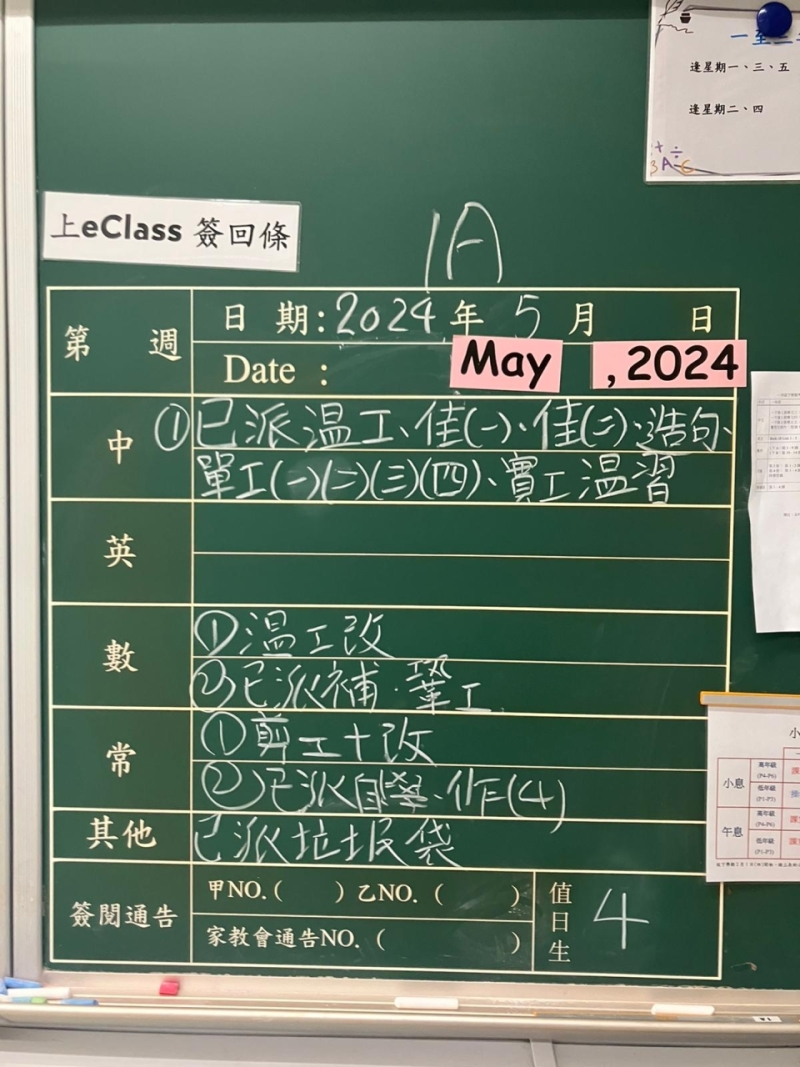 一至二年
逢星期一、三、五
逢星期二、四
上eClass 簽回條
1A
第 週
日 期:2024年 5 月 日
Date : May , 2024
中
①已派温工、佳(一)、佳(二)、造句、
單工(一)(二)(三)(四)、實工温習
英
數
①温工改
②已派補·鞏工
常
①剪工十改
②已派自學、作(4)
其他
已派垃圾袋
簽閱通告
甲NO.( )乙NO.( )
家教會通告NO.( )
值日生
4
小息
高年級
(P4-P6)
低年級
(P1-P3)
午息
高年級
(P4-P6)
低年級
(P1-P3)